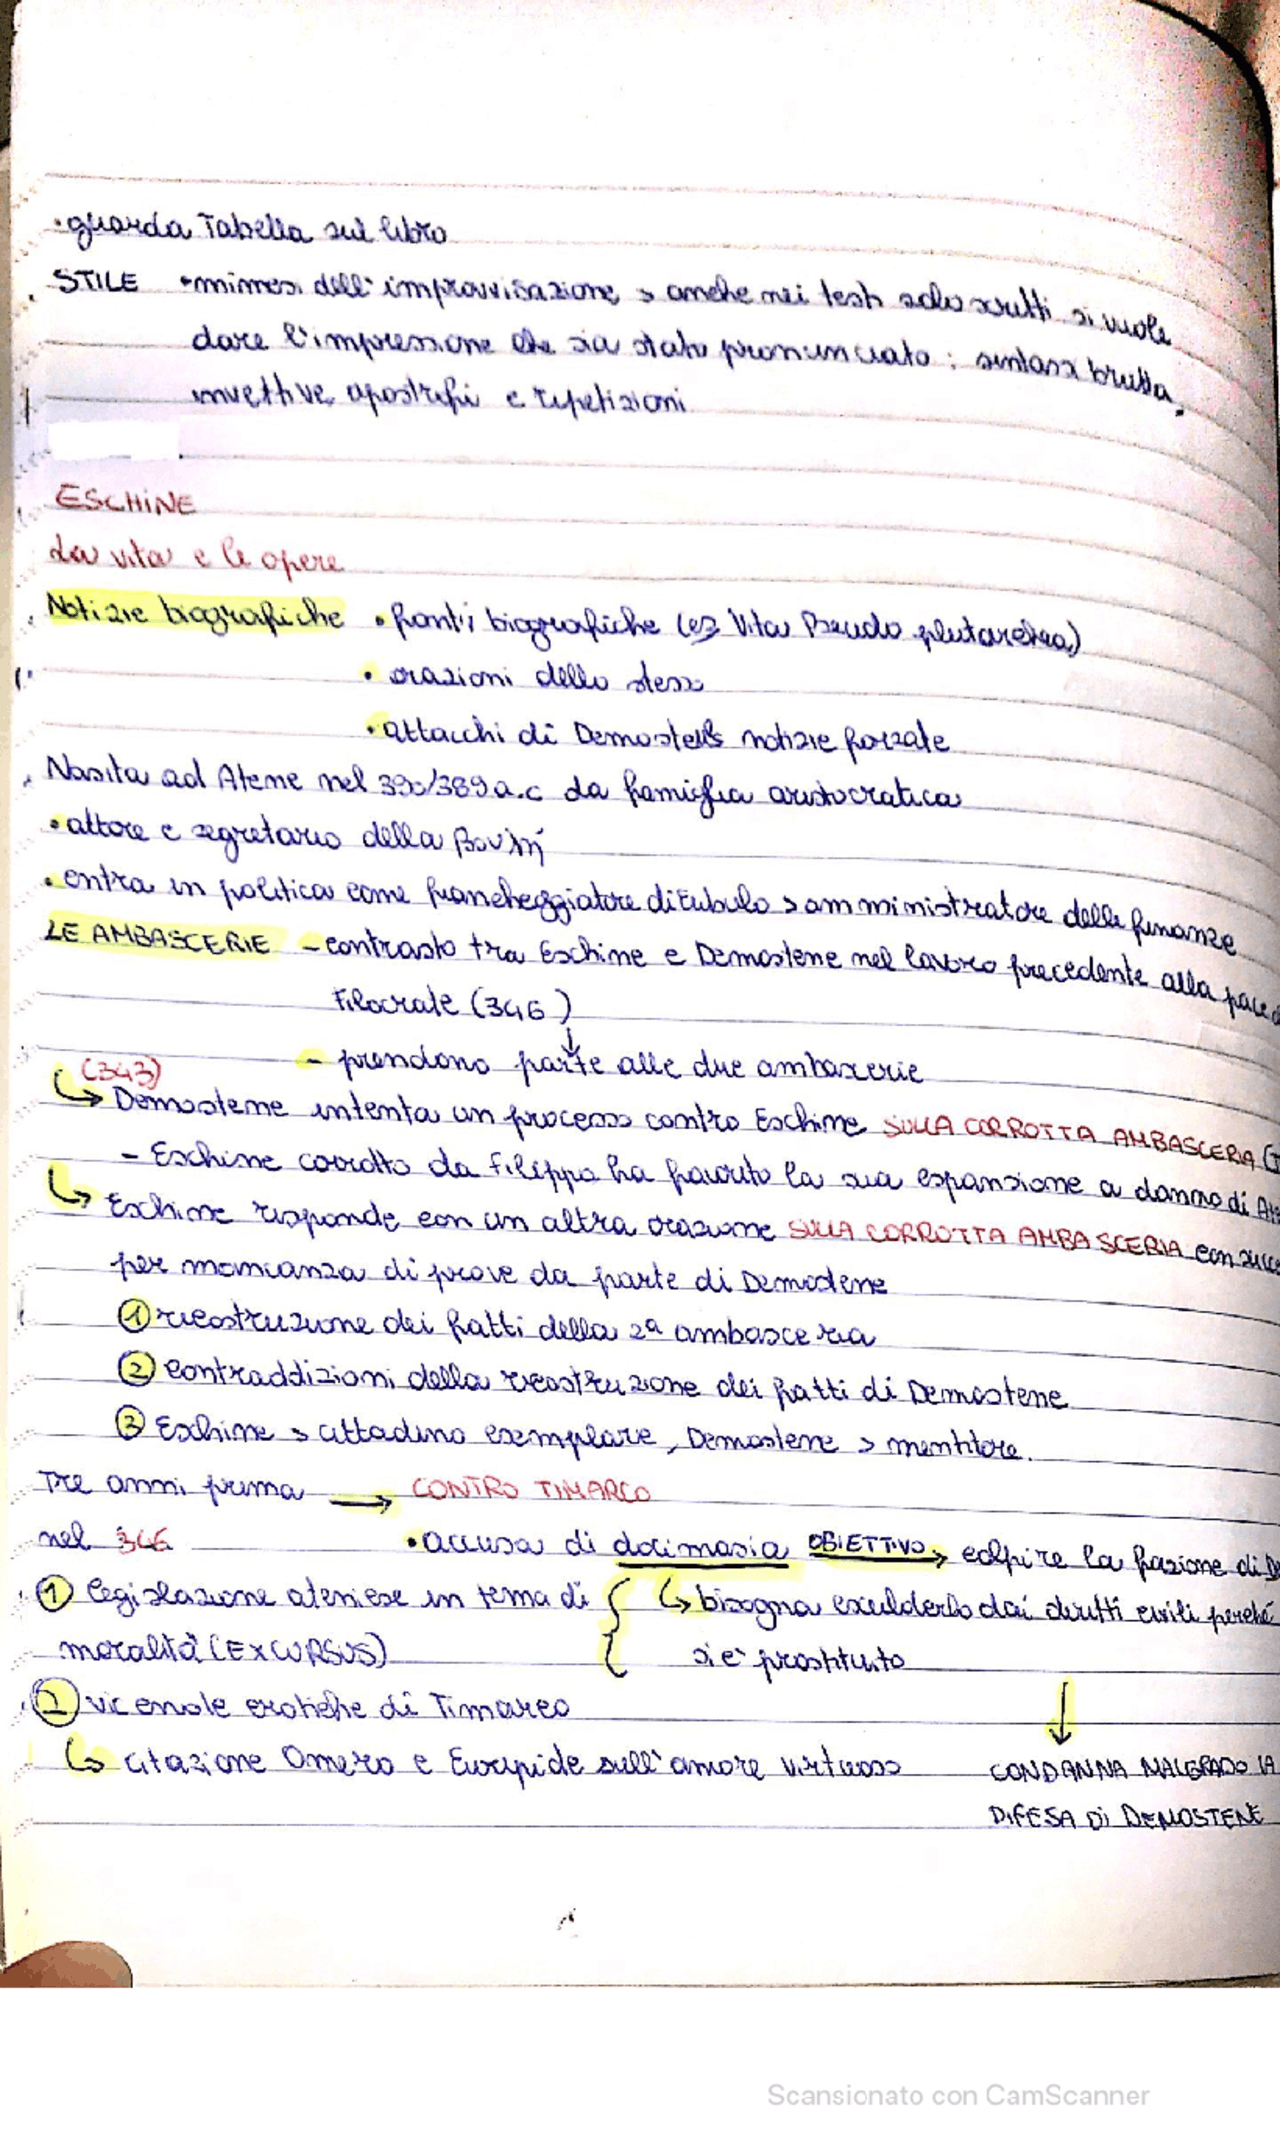 • guarda Tabella sul libro
STILE • mimesi dell'improvvisazione > anche nei testi solo scritti si vuole
dare l'impressione che sia stato pronunciato : sintassi brutta,
invettive, apostrofi e ripetizioni
ESCHINE
La vita e le opere
Notizie biografiche • fonti biografiche (es Vita Pseudo plutarchea)
• orazioni dello stesso
• attacchi di notizie forzate
Nasita ad Atene nel 390/389 a.c da famiglia aristocratica
• attore e segretario della
• entra in politica come fiancheggiatore di Eubulo > amministratore delle finanze
LE AMBASCERIE - contrasto tra Eschine e Demostene nel lavoro precedente alla pace
Filocrate (346)
- prendono parte alle due ambascerie
(343)
↳ Demostene intenta un processo contro Eschine SULLA CORROTTA AMBASCERIA
- Eschine corrotto da Filippo ha favorito la sua espansione a danno di
↳ Eschine risponde con un altra orazione SULLA CORROTTA AMBASCERIA con
per mancanza di prove da parte di Demostene
① ricostruzione dei fatti della 2ª ambasceria
② contraddizioni della ricostruzione dei fatti di Demostene
③ Eschine > cittadino esemplare, Demostene > mentitore.
Tre anni prima → CONTRO TIMARCO
nel 346 • accusa di docimasia OBIETTIVO → colpire la fazione di
① legislazione ateniese in tema di { ↳ bisogna esculderlo dai diritti civili perché
moralità (EXCURSUS) si è prostituito
② vicende erotiche di Timarco ↓
↳ citazione Omero e Euripide sull'amore virtuoso CONDANNA MALGRADO LA
DIFESA DI DEMOSTENE
Scansionato con CamScanner